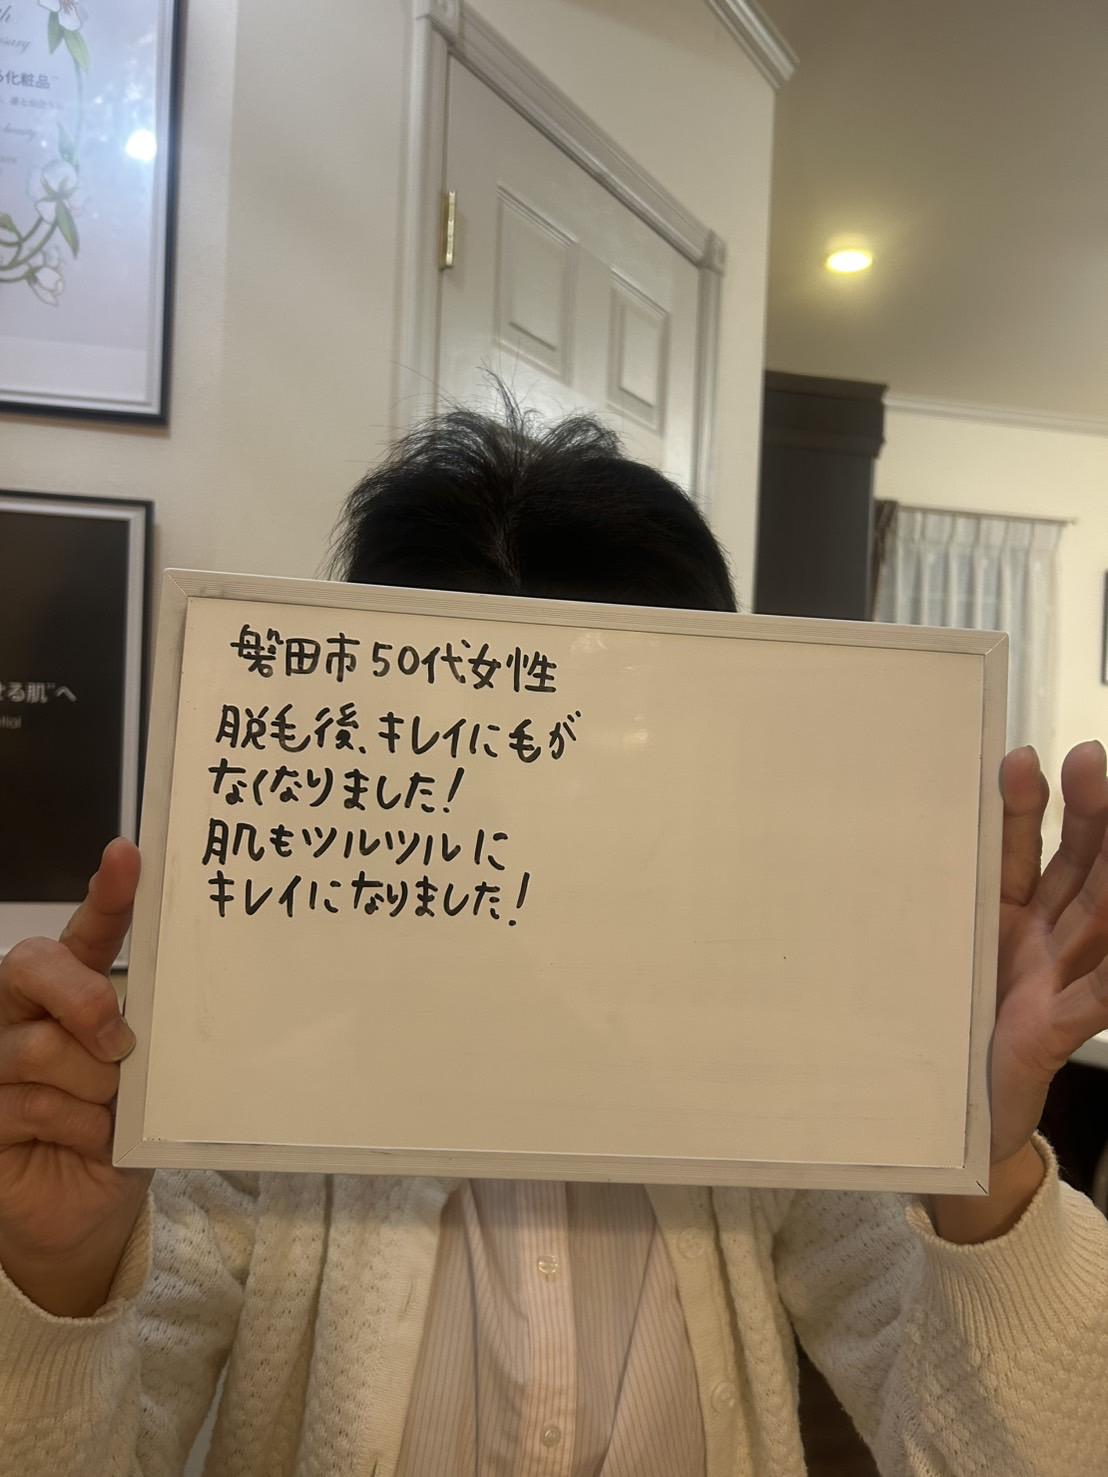 る化粧品"
せる肌"へ
磐田市50代女性
脱毛後、キレイに毛が
なくなりました！
肌もツルツルに
キレイになりました！